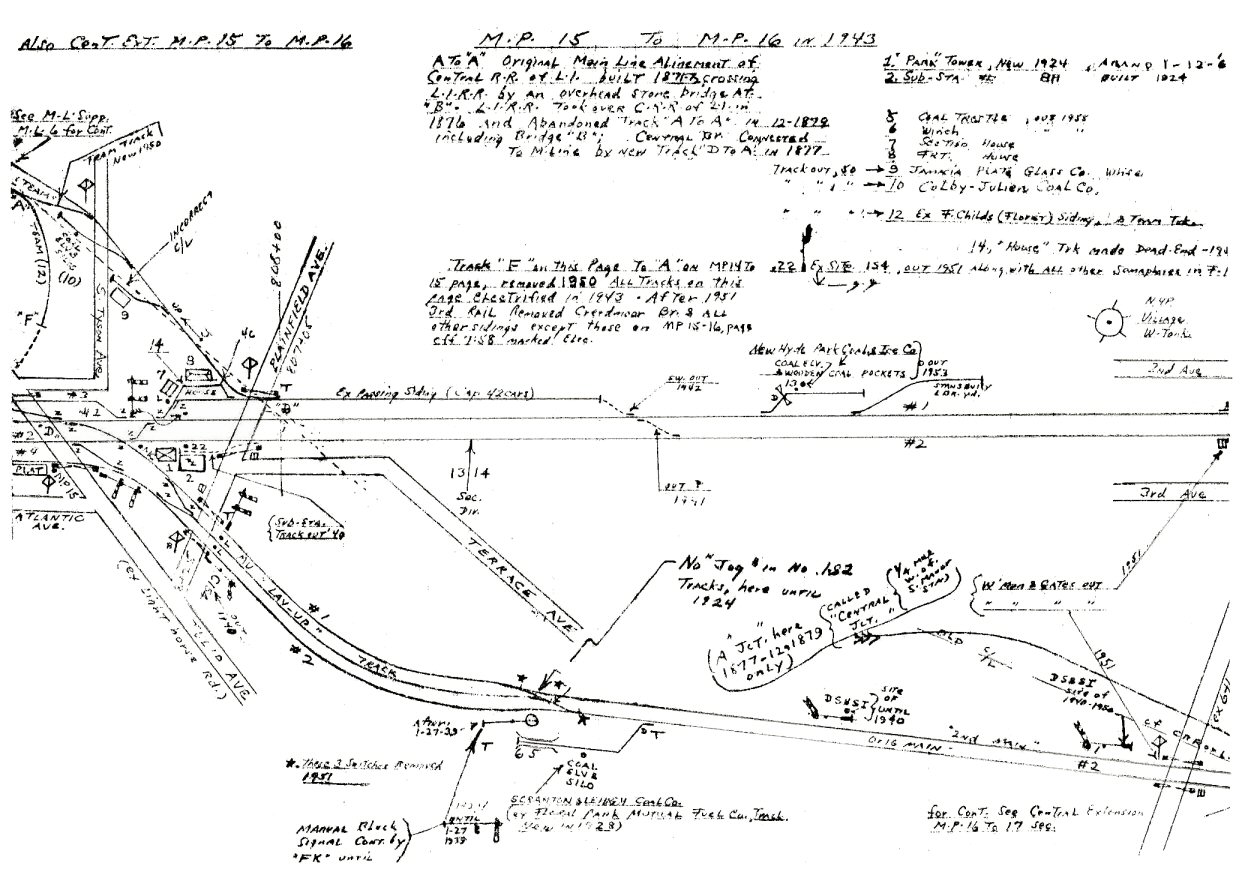 Also Cont. Ext. M.P. 15 To M.P. 16
M.P. 15 To M.P. 16 in 1943
A To "A" Original Main Line Alinement of
Central R.R. of L.I. built 1871-73, crossing
L.I.R.R. by an overhead stone bridge At
"B". L.I.R.R. Took over C.R.R. of L.I. in
1876 and Abandoned Track "A To A" in 12-1879
including Bridge "B"; Central Br. Connected
To M-Line by new Track "D To A" in 1877
1. "Park" Tower, New 1924, Aband
2. Sub-Sta. Built 1924
5 Coal Trestle, out 1958
6 Winch " "
7 Section House
8 Frt. House
Track out, 50 → 9 Jamacia Plate Glass Co. Whse.
" " " → 10 Colby-Julien Coal Co.
" " " → 12 Ex F. Childs (Florist) Siding, & Team Trk.
14, "House" Trk made Dead-End
22 Ex Site 154, out 1951 Along with ALL other Semaphores in
Track "F" on this Page To "A" on MP14 To
15 page, removed 1950 All Tracks on this
page Electrified in 1943 - After 1951
3rd Rail Removed Creedmoor Br. & ALL
other sidings except those on MP 15-16, page
eff 7-58 marked Elec.
See M-L Supp.
M.L. 6 for Cont.
Team Track
New 1950
Steam
"A"
Team (12)
(10)
"F"
S. Tyson Ave.
Incorrect
C/L
808+00
Plainfield Ave.
807+05
9
46
14
8
7
House
T
"B"
Ex Passing Siding (Cap. 42 cars)
SW. OUT
1942
OUT
1941
New Hyde Park Coal & Ice Co
Coal Elv.
& Wooden Coal Pockets
D OUT
1953
130+
Stansbury
Lbr. Yd.
N.Y.P.
Village
W-Tank
2nd Ave
3rd Ave
#3
#1
#2
#4
"D"
#1
#2
PLAT
MP 15
Atlantic
Ave.
22
1
2
13 | 14
Sec.
Div.
(Sub-Sta.
Track out '40)
Terrace Ave
(ex Light horse Rd.)
Tulip Ave
out
1940
MU "Lay-up"
Track
#1
#2
No "Jog" in No. 1&2
Tracks, here until
1924
(A "Jct." here
1877-12-1879
only)
Called
"Central
Jct."
1/4 mile
W. of
S. Manor
Stn)
W'men & Gates out
" " " "
1951
1951
Old
C/L
DSBSI
Site of
1940-1950
DSBSI
Site
of
until
1940
Or 16 Main
"2nd Main"
#2
(ex 641)
After
1-27-39
T
65
DT
Coal
Elv &
Silo
*. These 3 Switches Removed
1951
Scranton & Lehigh Coal Co.
(ex Floral Park Mutual Fuel Co. Track
New in 1923)
Until
1-27
1939
Manual Block
Signal Cont. by
"FK" until
for Cont. See Central Extension
M.P. 16 To 17 Sec.